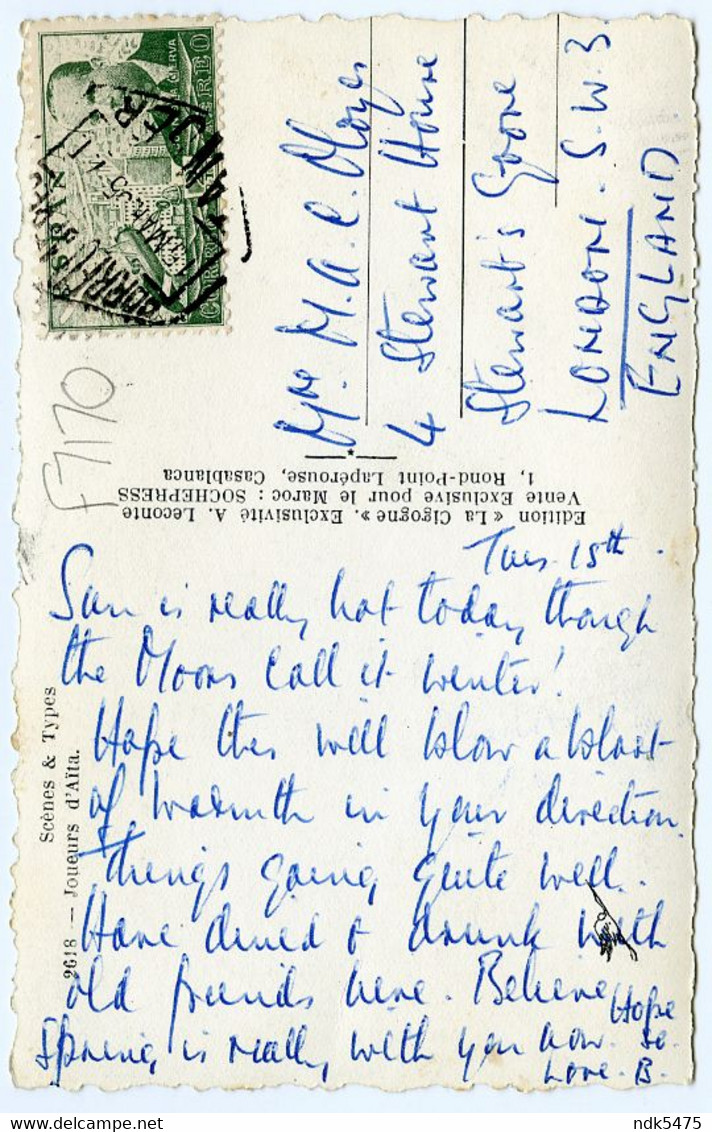 LA CIERVA
CORREO AEREO
F7170
Mrs. M.A.C. Noyes
4 Stewart House
Stewart's Grove
LONDON - S.W.3.
ENGLAND
Edition « La Cigogne ». Exclusivité A. Leconte
Vente Exclusive pour le Maroc : SOCHEPRESS
1, Rond-Point Lapérouse, Casablanca
Scènes & Types
2618 — Joueurs d'Aïta.
Tues. 15th.
Sun is really hot today though
the Moors call it winter!
Hope this will blow a blast
of warmth in your direction.
Things going quite well.
Have dined & drunk with
old friends here. Believe
Spring is really with you now. Hope
so.
Love. B.
ndk5475